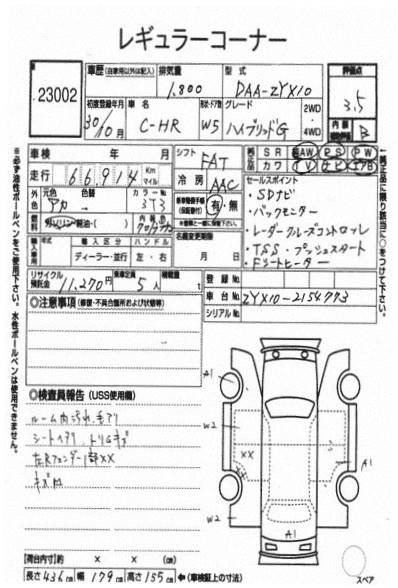 レギュラーコーナー
23002
車歴 (自家用以外は記入) 排気量 型式 評価点
1,800 DAA-ZYX10 3.5
初度登録年月 車名 ドア 形状 グレード 2WD 4WD
30/10月 C-HR W5 ハイブリッドG
内装 B
車検 年 月
シフト FAT
純正品 SR AW PS PW
カワ TV ナビ エアB
走行 66914 Km マイル
冷房 AAC
セールスポイント
外色 元色 色替 カラーNo.
アカ 3T3
・SDナビ
・バックモニター
・レーダークルーズコントロール
・TSS・プッシュスタート
・Fシートヒーター
有・無
燃料 ガソリン・軽油・( 内装色
名義変更期限 月 日
輸入車 輸入区分 ハンドル
ディーラー・並行 左・右
リサイクル預託金 11,270円 乗車定員 5人 積載量 t
登録No.
車台No. ZYX10-2154773
シリアルNo.
◎注意事項 (修復・不具合箇所および状態等)
◎検査員報告 (USS使用欄)
ルーム内汚れ、毛アリ
シートヘアリ トリムキズ
左Rフェンダー1部XX
キズ凹
A1
W2
XX
A1
W2
A1
スペア
【荷台内寸】 約 × × (cm)
長さ 436cm 幅 179cm 高さ 155cm ←(車検証上の寸法)
※必ず油性ボールペンをご使用下さい。水性ボールペンは使用できません。
←純正品に限り該当に○をつけて下さい。